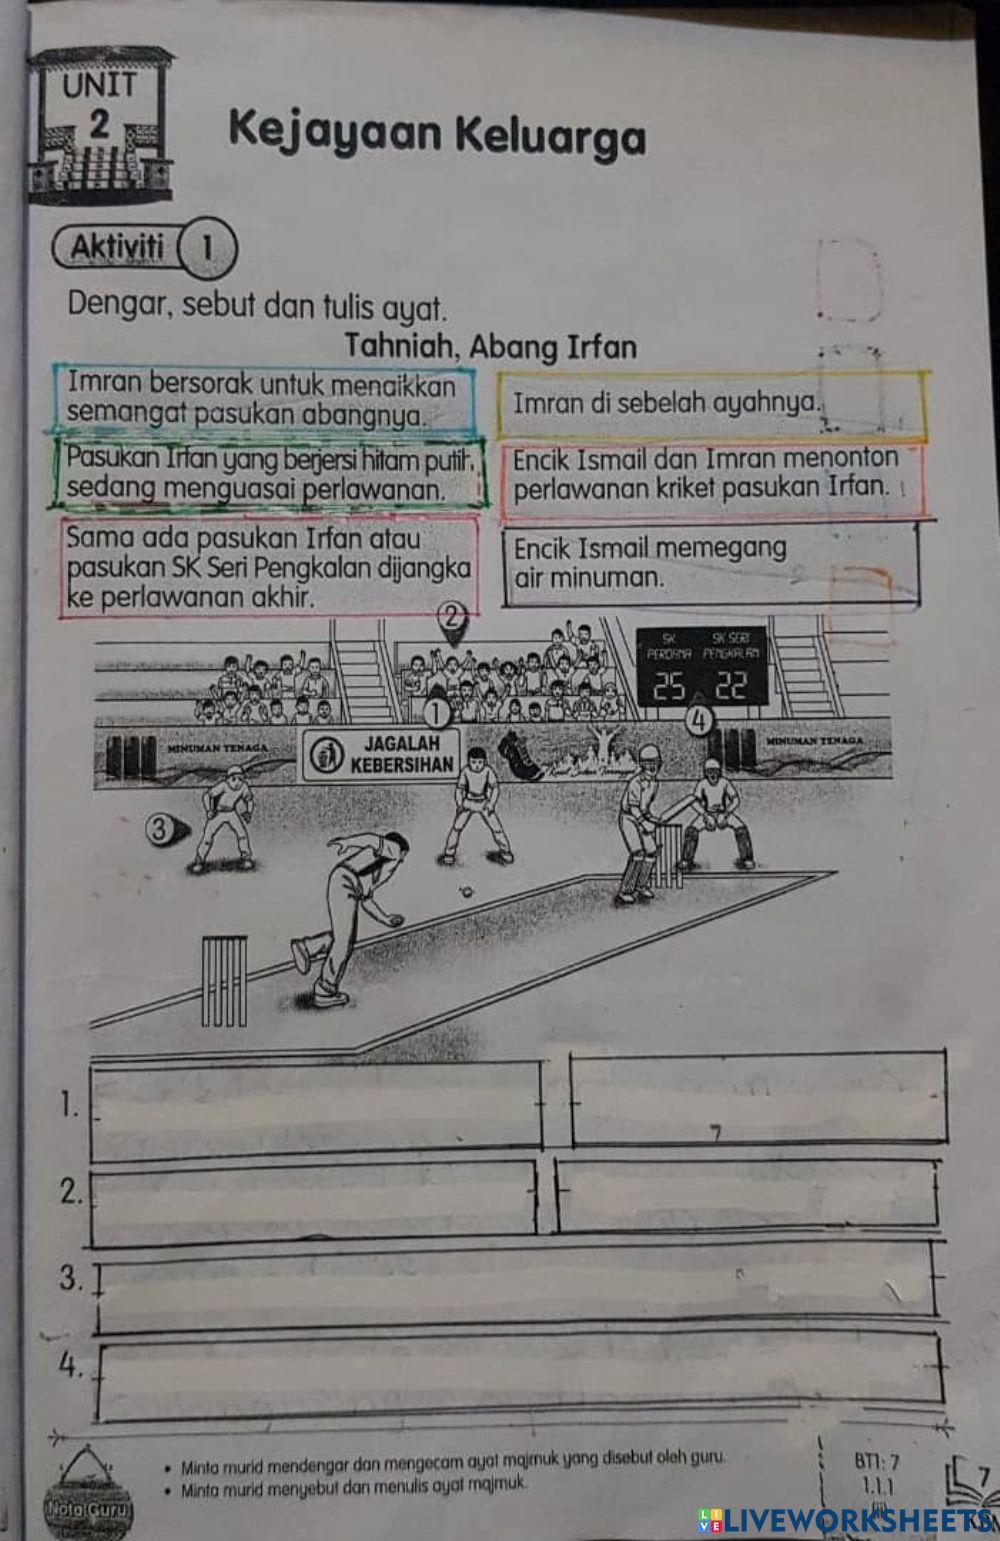 UNIT
2
Kejayaan Keluarga
Aktiviti 1
Dengar, sebut dan tulis ayat.
Tahniah, Abang Irfan
Imran bersorak untuk menaikkan
semangat pasukan abangnya.
Imran di sebelah ayahnya.
Pasukan Irfan yang berjersi hitam putih,
sedang menguasai perlawanan.
Encik Ismail dan Imran menonton
perlawanan kriket pasukan Irfan.
Sama ada pasukan Irfan atau
pasukan SK Seri Pengkalan dijangka
ke perlawanan akhir.
Encik Ismail memegang
air minuman.
2
SK SK SERI
PERDANA PENGKALAN
25 22
1
4
MINUMAN TENAGA
JAGALAH
KEBERSIHAN
MINUMAN TENAGA
3
1.
2.
3.
4.
Nota Guru
• Minta murid mendengar dan mengecam ayat majmuk yang disebut oleh guru.
• Minta murid menyebut dan menulis ayat majmuk.
BT1: 7
1.1.1
(ii)
7
LIVEWORKSHEETS